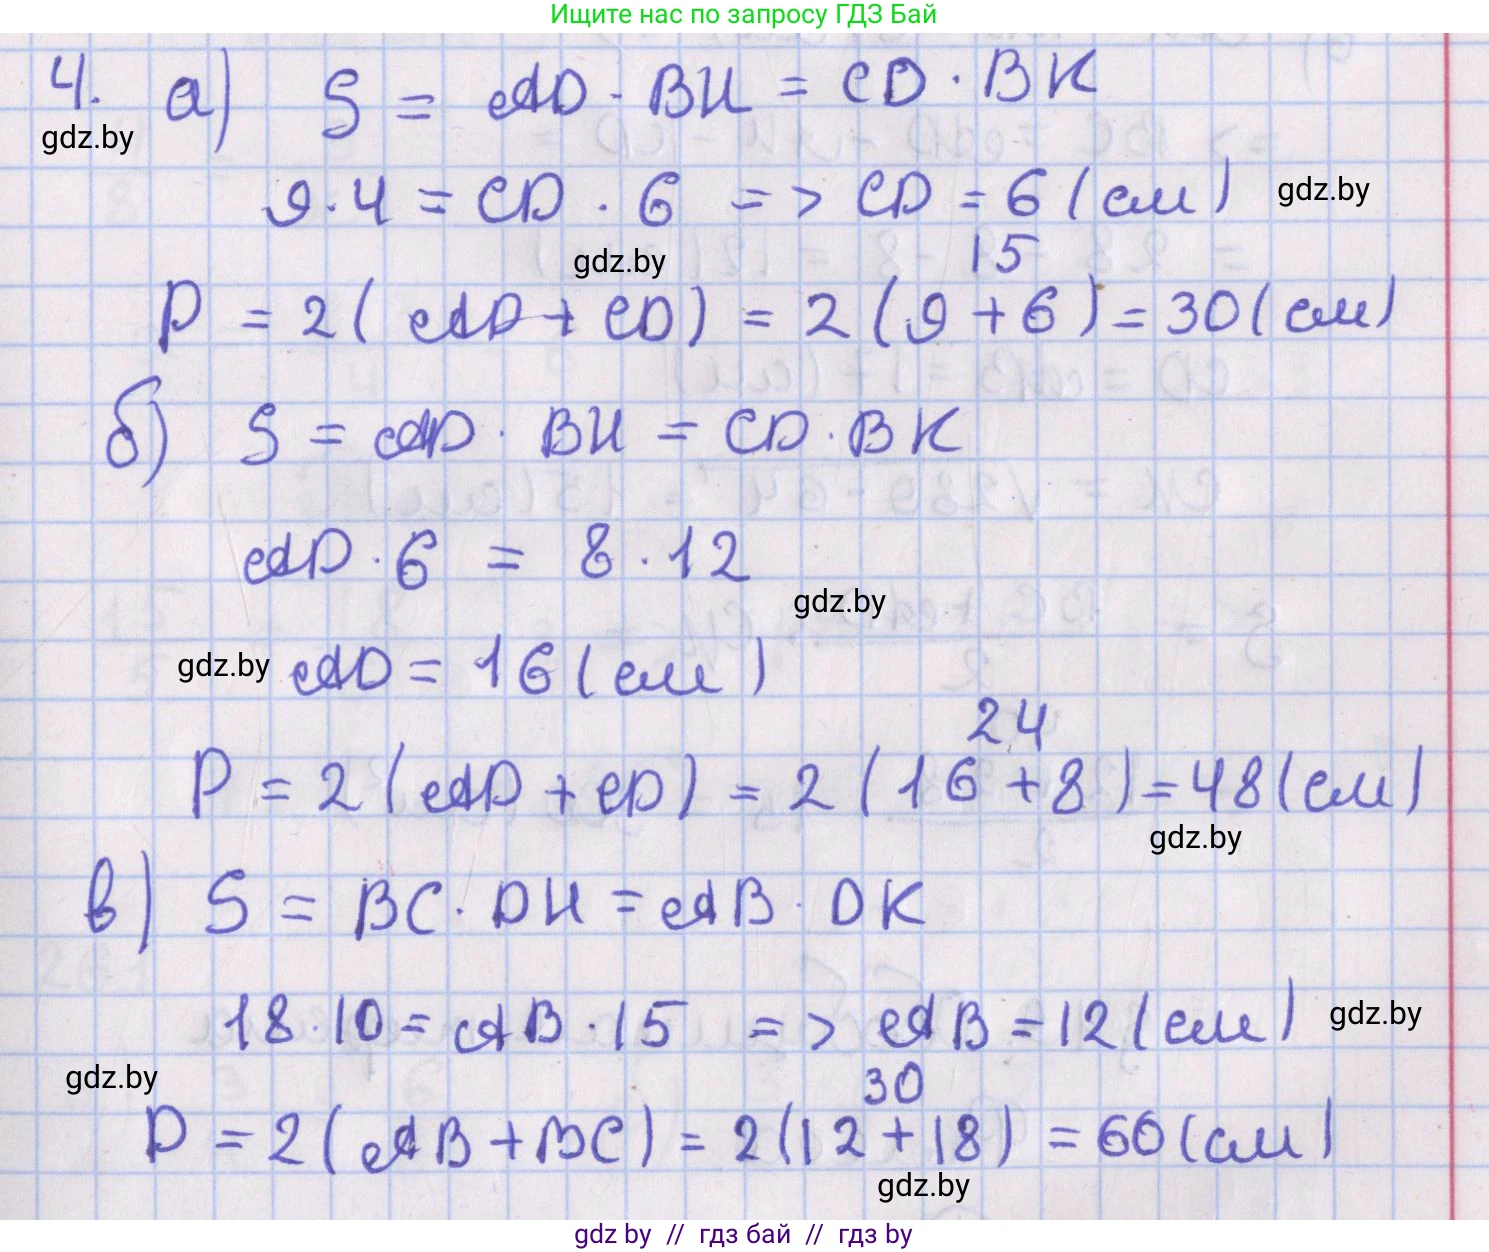 Ищите нас по запросу ГДЗ Бай
4. а) S = AD · BH = CD · BK
gdz.by
9·4 = CD · 6 => CD = 6 (см)
gdz.by
gdz.by
15
P = 2(AD + CD) = 2(9 + 6) = 30 (см)
б) S = AD · BH = CD · BK
AD · 6 = 8 · 12
gdz.by
gdz.by
AD = 16 (см)
24
P = 2(AD + CD) = 2(16 + 8) = 48 (см)
gdz.by
в) S = BC · DH = AB · DK
18 · 10 = AB · 15 => AB = 12 (см)
gdz.by
gdz.by
30
P = 2(AB + BC) = 2(12 + 18) = 60 (см)
gdz.by
gdz by // гдз бай // гдз by